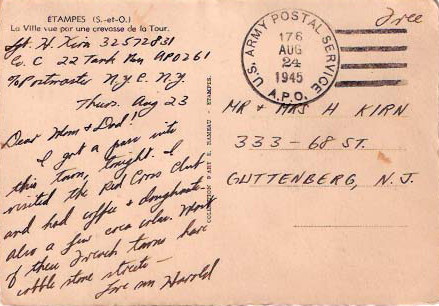 ÉTAMPES (S.-et-O.)
La Ville vue par une crevasse de la Tour.
Sgt. H. Kirn 32572831
Co. C 22 Tank Bn APO 261
℅ Postmaster N.Y.C. N.Y.
Thurs. Aug 23
Dear Mom & Dad!
I got a pass into
this town, tonight. I
visited the Red Cross Club
and had coffee & doughnuts—
also a few coca colas. Most
of these French towns have
cobble stone streets—
Love Harold
COLLECTION RAMEAU - ÉTAMPES.
U.S. ARMY POSTAL SERVICE
176
AUG
24
1945
A.P.O.
Free
MR + MRS H KIRN
333-68 ST.
GUTTENBERG, N.J.